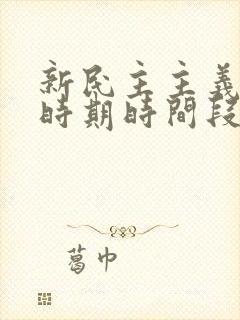 新民主主義
時期時間段
葛巾